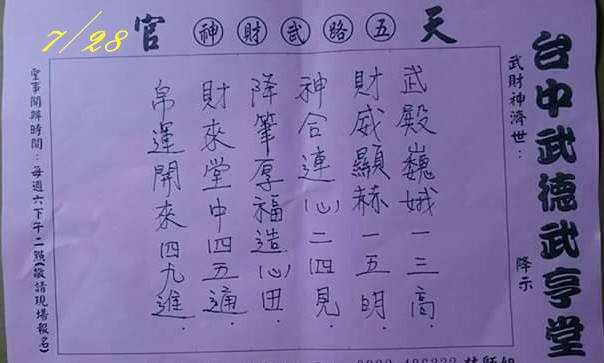 7/28
天 五路武財神 官
台中武德武亨堂
武財神濟世： 降示
武殿巍娥一三高．
財威顯赫一五明．
神合連(心)二四見．
降筆厚福造(心)田．
財來堂中四五通．
帛運開來四九進．
聖事開辦時間：每週六下午二點(敬請現場報名)